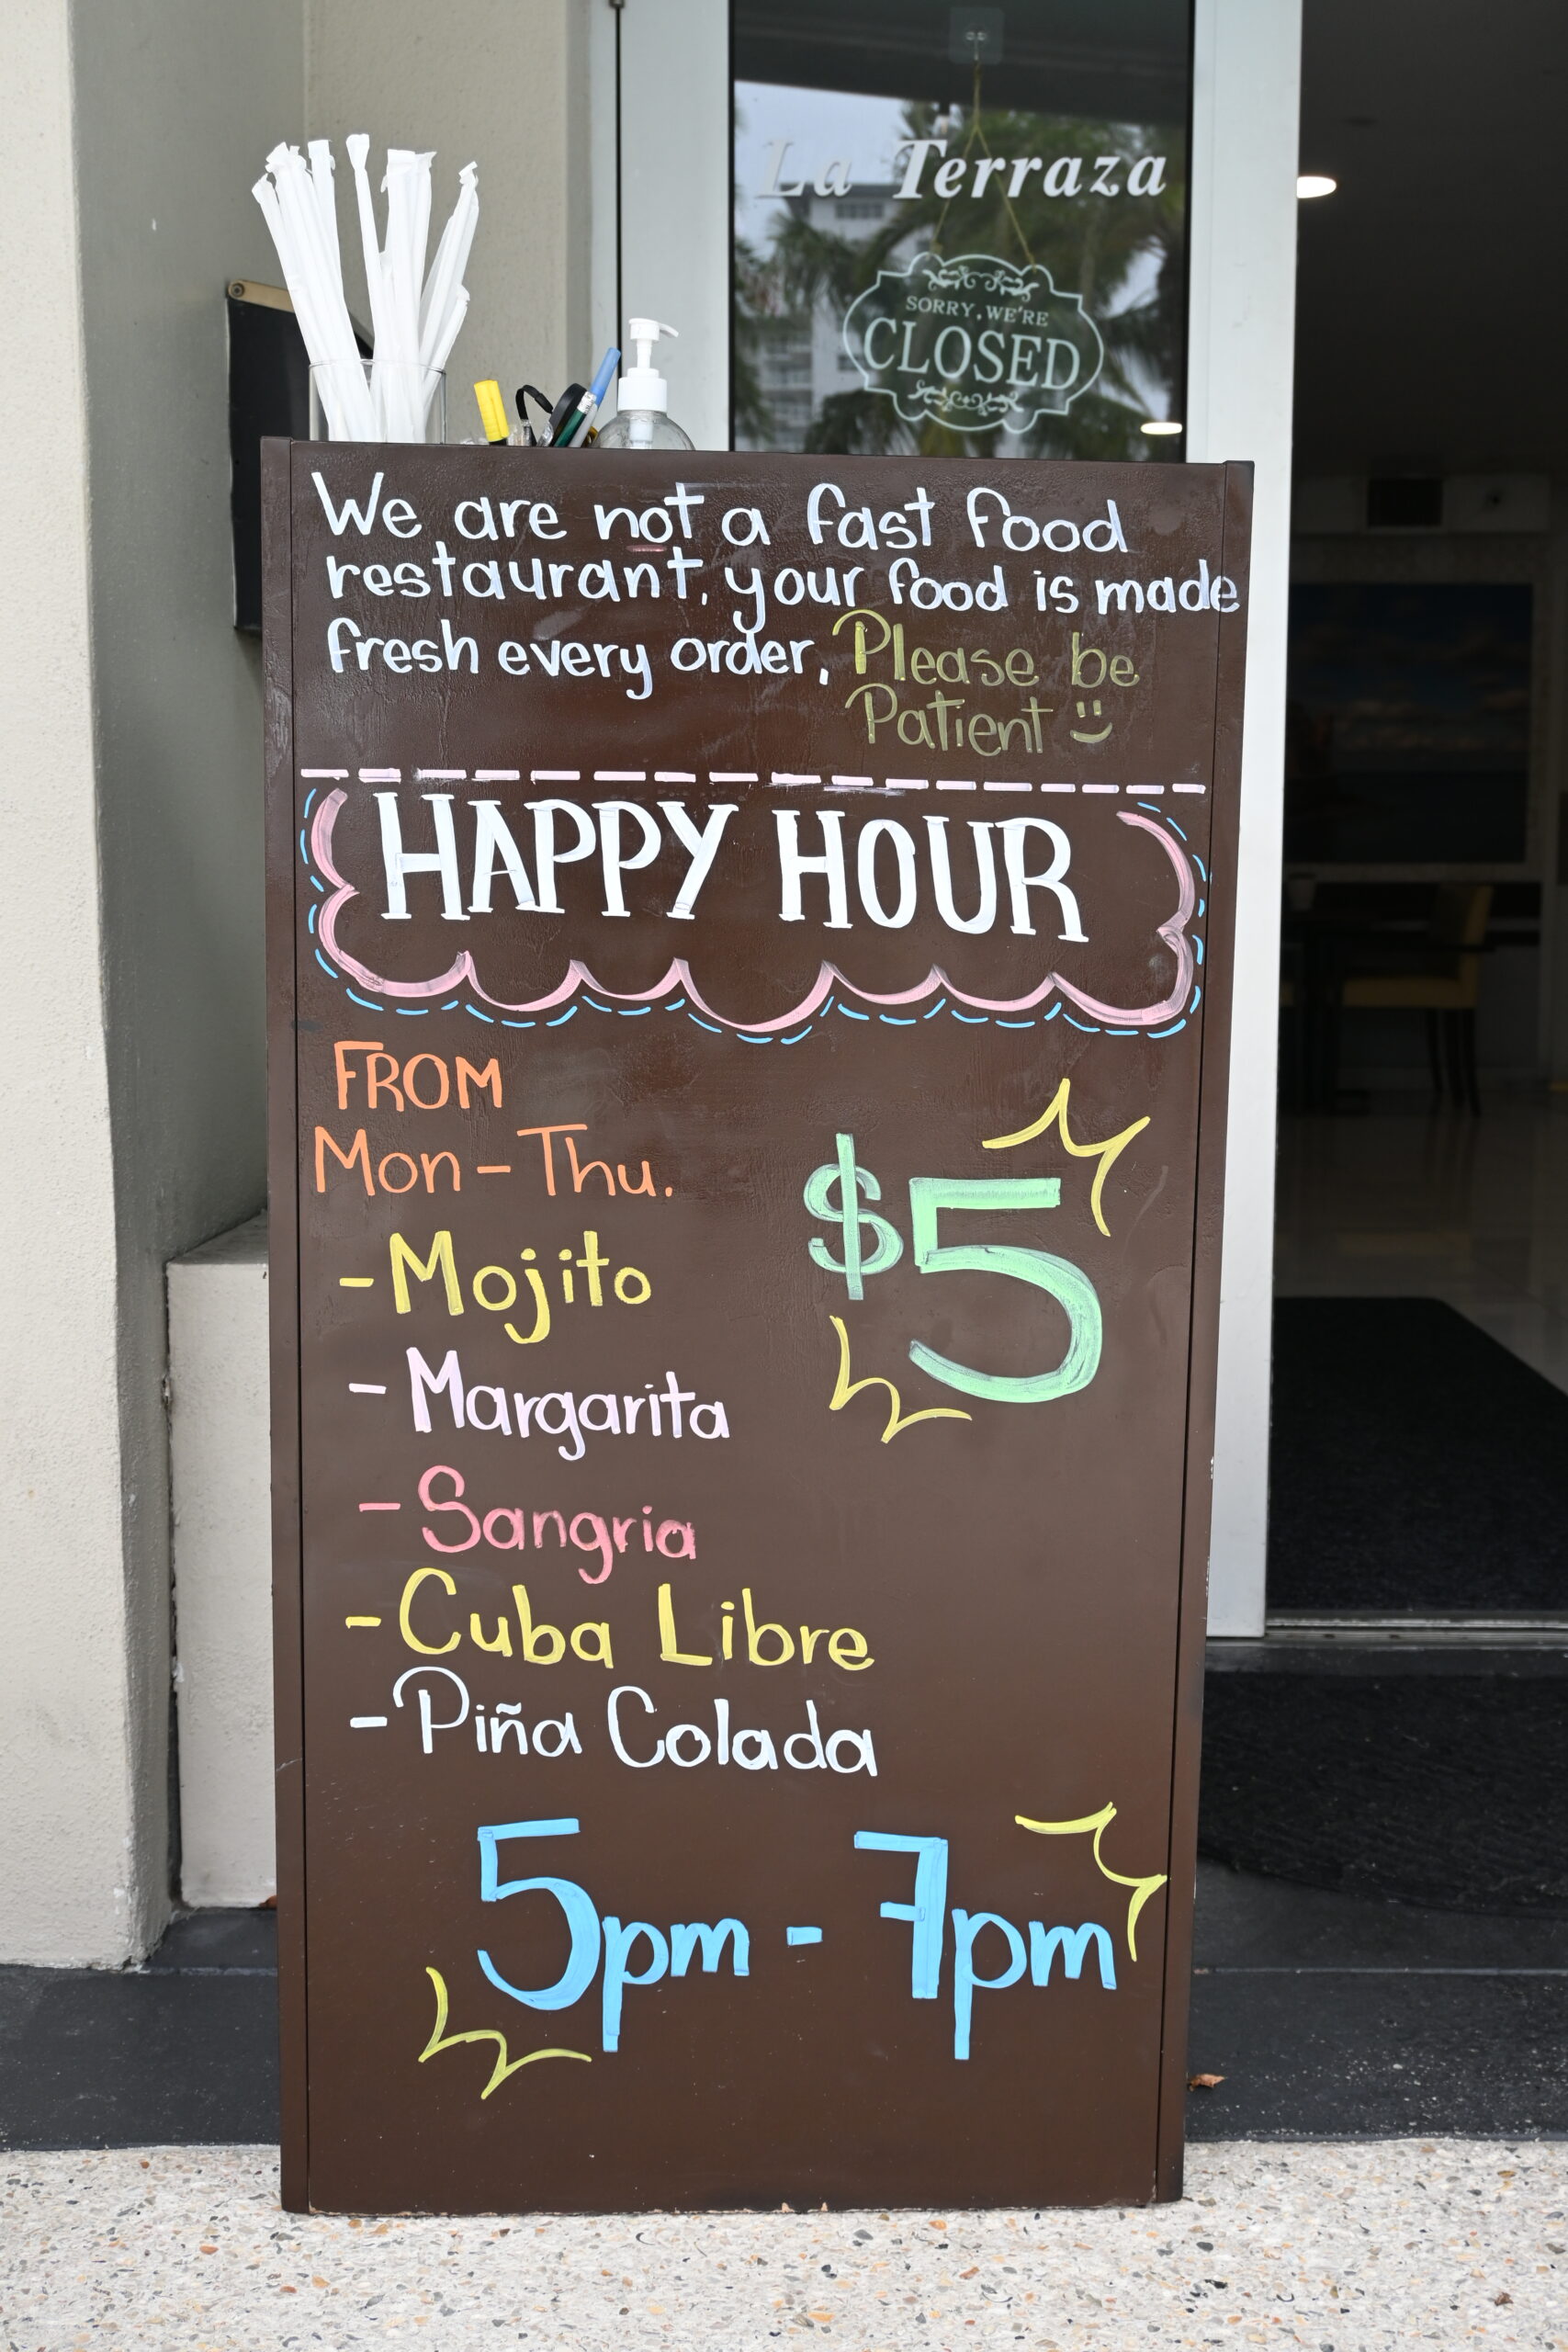 La Terraza
SORRY, WE'RE
CLOSED
We are not a fast food
restaurant, your food is made
fresh every order, Please be
Patient
HAPPY HOUR
FROM
Mon-Thu.
$5
- Mojito
- Margarita
- Sangria
- Cuba Libre
- Piña Colada
5pm - 7pm